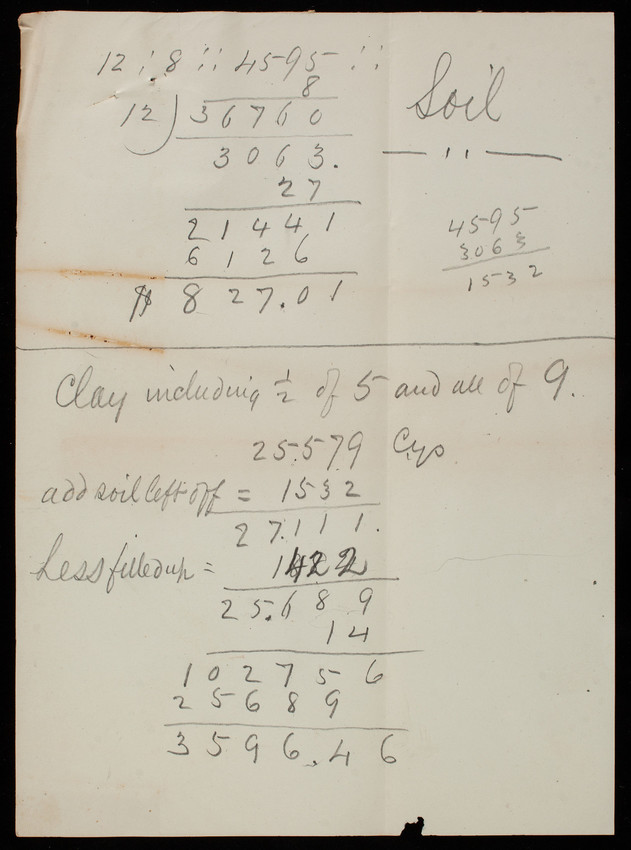 12 : 8 :: 4595 ::
8
12 ) 36760
3063.
27
21441
6126
$ 827.01
Soil
4595
3063
1532
Clay including 1/2 of 5 and all of 9.
25.579 Cyo
add soil left off = 1532
27.111.
Less filled up = 1422
25.689
14
102756
25689
3596.46